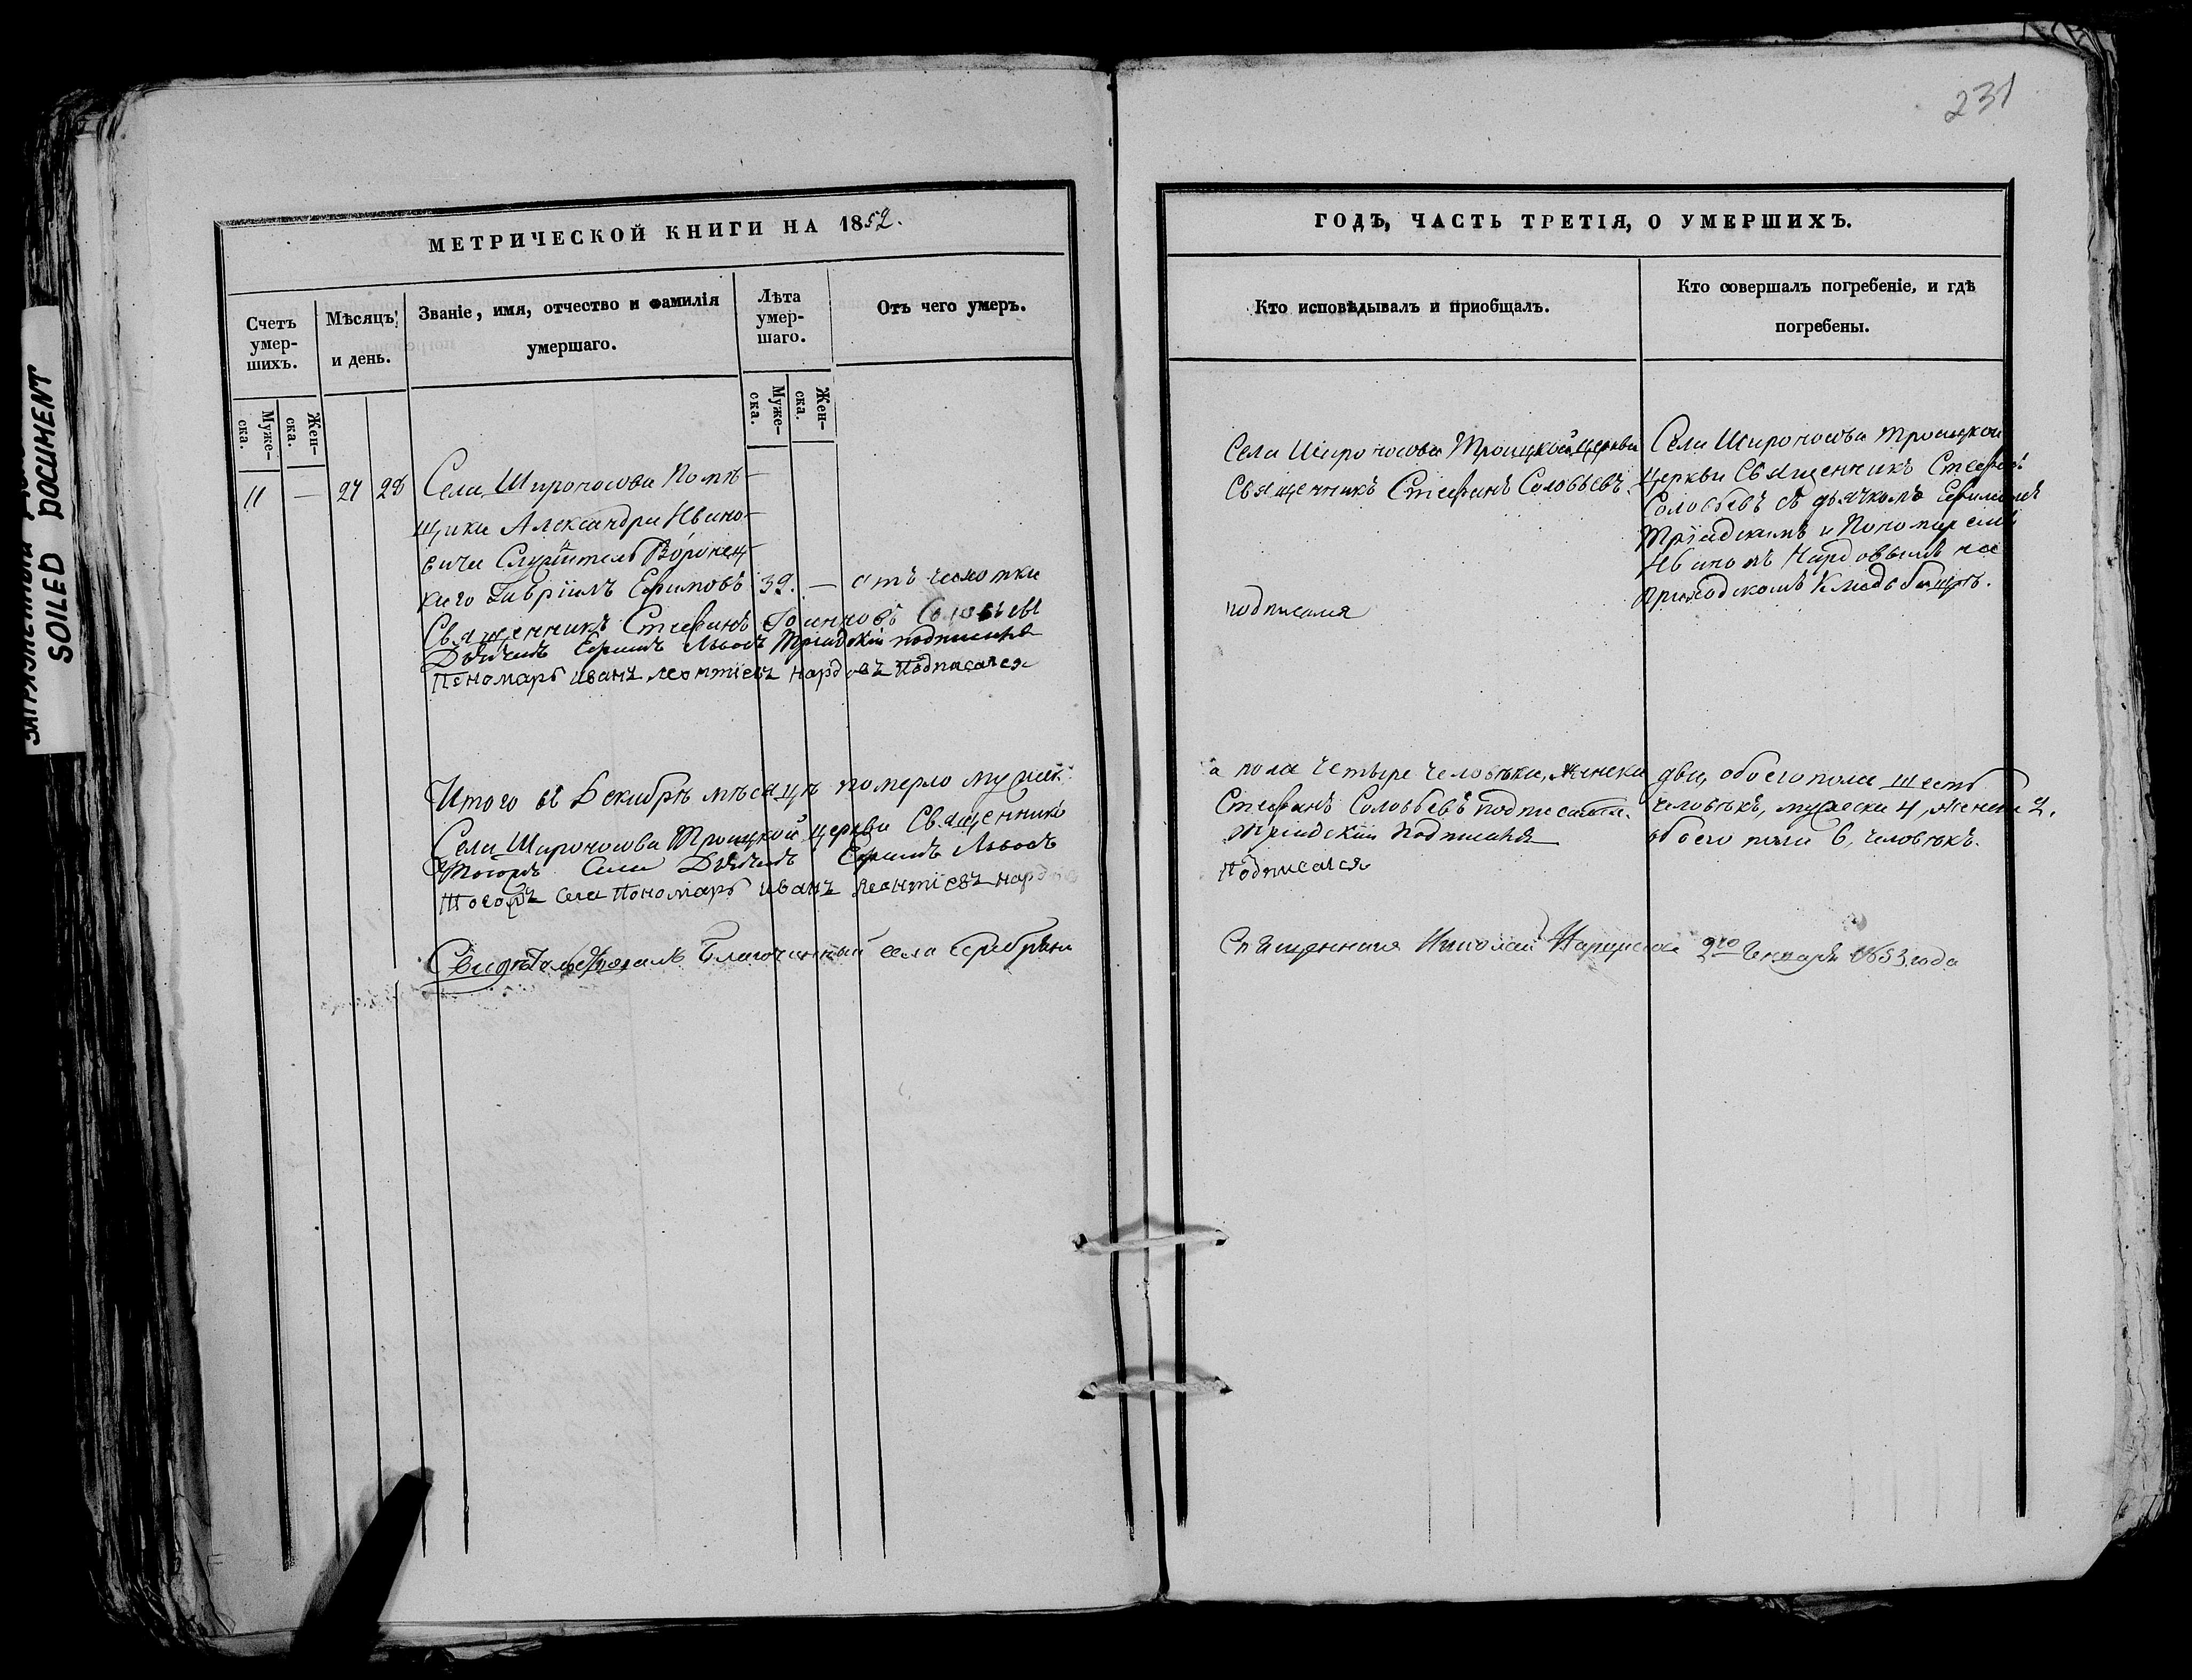 231
ЗАГРЯЗНЕННЫЙ
SOILED DOCUMENT
МЕТРИЧЕСКОЙ КНИГИ НА 1852.
Счетъ умер-
шихъ.
Мѣсяцъ
и день.
Званіе, имя, отчество и фамилія
умершаго.
Лѣта
умер-
шаго.
Отъ чего умеръ.
Муже-
ска.
Жен-
ска.
Муже-
ска.
Жен-
ска.
11 — 24 28 Села Широносова Помѣ-
щика Александра Ивано-
вича Служитель Воронец-
каго Гавріилъ Ефимовъ 39. — отъ чахотки
Священникъ Стефанъ Іоанновъ Соловьевъ
Дьячекъ Ефимъ Львовъ Тріадскій подписался
Пономарь Иванъ Леонтіевъ Нардовъ Подписался
Итого въ Декабрѣ мѣсяцѣ померло мужск
Села Широносова Троицкой церкви Священникъ
Тогожъ Села Дьячекъ Ефимъ Львовъ
Тогожъ села Пономарь Иванъ Леонтіевъ Нардовъ
Свидѣтельствовалъ Благочинный села
ГОДЪ, ЧАСТЬ ТРЕТІЯ, О УМЕРШИХЪ.
Кто исповѣдывалъ и приобщалъ.
Кто совершалъ погребеніе, и гдѣ
погребены.
Села Широносова Троицкой церкви
Священникъ Стефанъ Соловьевъ.
подписался
Села Широносова Троицкой
церкви Священникъ Стефанъ
Соловьевъ съ дьячкомъ Ефимомъ
Тріадскимъ и Пономаремъ
Иваномъ Нардовымъ на
приходскомъ Кладбищѣ.
а пола четыре человѣка, женска два, обоего пола шесть
Стефанъ Соловьевъ подписался. человѣкъ, мужска 4, женска 2.
Тріадскій подписался обоего пола 6, человѣкъ.
Подписался
Священникъ Николай 2го Генваря 1853 года